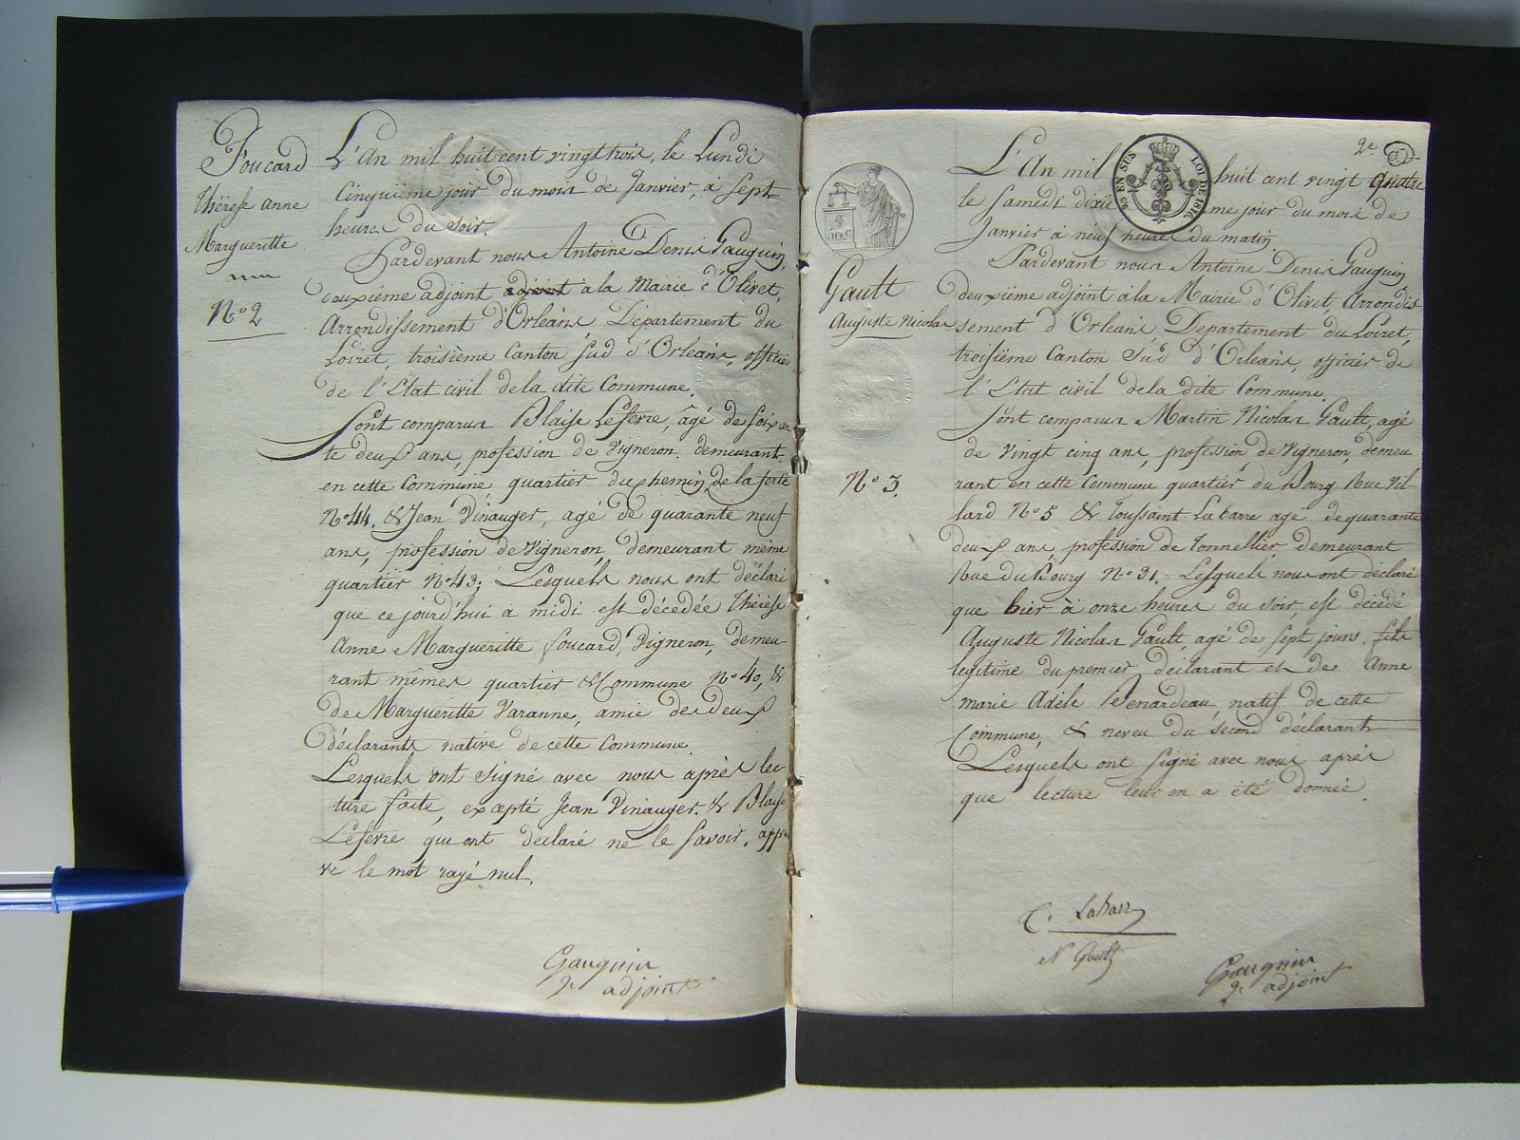 Foucard
Thérese anne
Margueritte
N° 2
L'An mil huit cent vingt trois, le Lundi
Cinquième jour du mois de Janvier, à sept
heures du soir.
Pardevant nous Antoine Denis Gauguin,
deuxième adjoint adjoint à la Mairie d'Olivet,
Arrondissement d'Orléans, Département du
Loiret, troisième Canton Sud d'Orléans, officier
de l'Etat civil de la dite Commune.
Sont comparus Blaise Lefevre, âgé de soixan
te deux ans, profession de Vigneron, demeurant
en cette Commune quartier du chemin de la ferté
N° 44. & Jean Vinauger, agé de quarante neuf
ans, profession de Vigneron, demeurant même
quartier N° 43; Lesquels nous ont déclaré
que ce jourd'hui a midi est décedée Thérèse
Anne Margueritte foucard, Vigneron, demeu
rant mêmes quartier & Commune N° 40, &
de Margueritte Varanne, amie des deux
déclarants native de cette Commune.
Lesquels ont signé avec nous après lec
ture faite, excepté Jean Vinauger & Blaise
Lefevre qui ont déclaré ne le savoir. app
ve le mot rayé nul.
Gauguin
2e adjoint
2e
L'An mil huit cent vingt quatre
le Samedi dixième jour du mois de
Janvier à neuf heures du matin
Pardevant nous Antoine Denis Gauguin
deuxième adjoint à la Mairie d'Olivet, Arrondis
sement d'Orléans Département du Loiret,
troisième Canton Sud d'Orléans, officier de
l'Etat civil de la dite Commune.
EN SUS
LOI DE 1816
Gault
Auguste Nicolas
N° 3.
Sont comparus Martin Nicolas Gault, agé
de vingt cinq ans, profession de Vigneron, demeu
rant en cette Commune quartier du Bourg Rue Vil
lard N° 5 & Toussaint Labarre agé de quarante
deux ans, profession de Tonnellier, demeurant
Rue du Bourg N° 31. Lesquels nous ont déclaré
que hier à onze heures du soir est décédé
Auguste Nicolas Gault, agé de sept jours, fils
legitime du premier déclarant et de Anne
marie Adèle Benardeau, natif de cette
Commune, & neveu du second déclarant
Lesquels ont signé avec nous après
que lecture leur en a été donnée.
Labarre
N Gault
Gauguin
2e adjoint